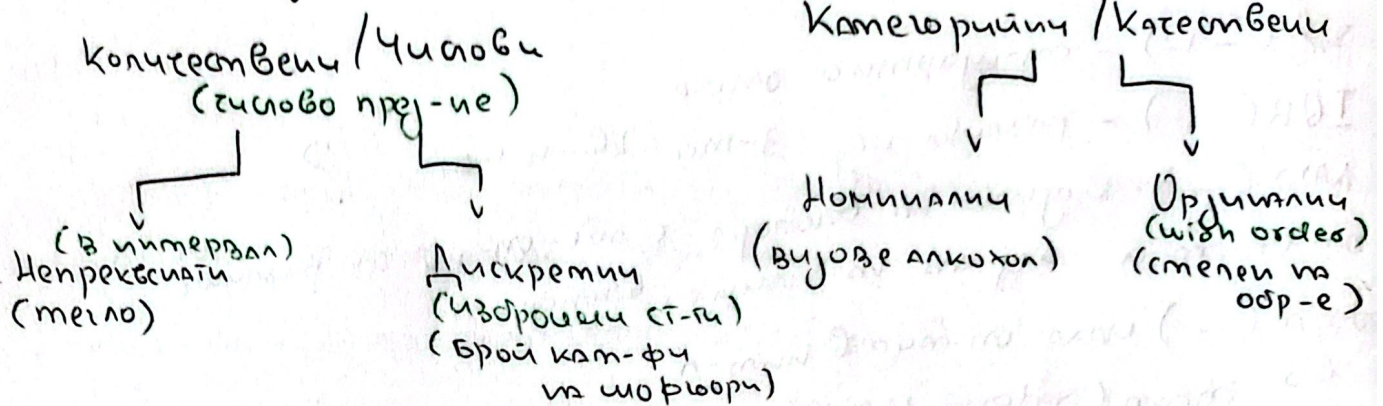 Количествени / Числови
(числово пред-не)
(в интервал)
Непрекъснати
(тегло)
Дискретни
(изброими ст-ти)
(брой кат-фи
на шофьори)
Категорийни / Качествени
Номинални
(видове алкохол)
Ординални
(with order)
(степен на
обр-е)